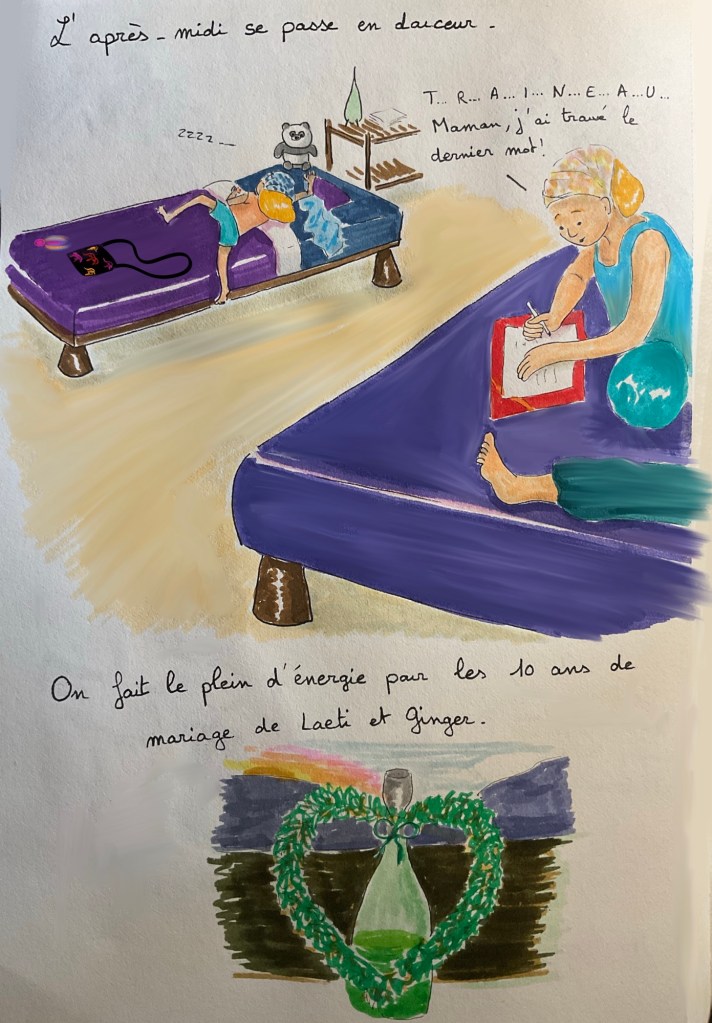 L'après-midi se passe en douceur.
zzzz...
T... R... A... I... N... E... A... U...
Maman, j'ai trouvé le
dernier mot!
On fait le plein d'énergie pour les 10 ans de
mariage de Laeti et Ginger.